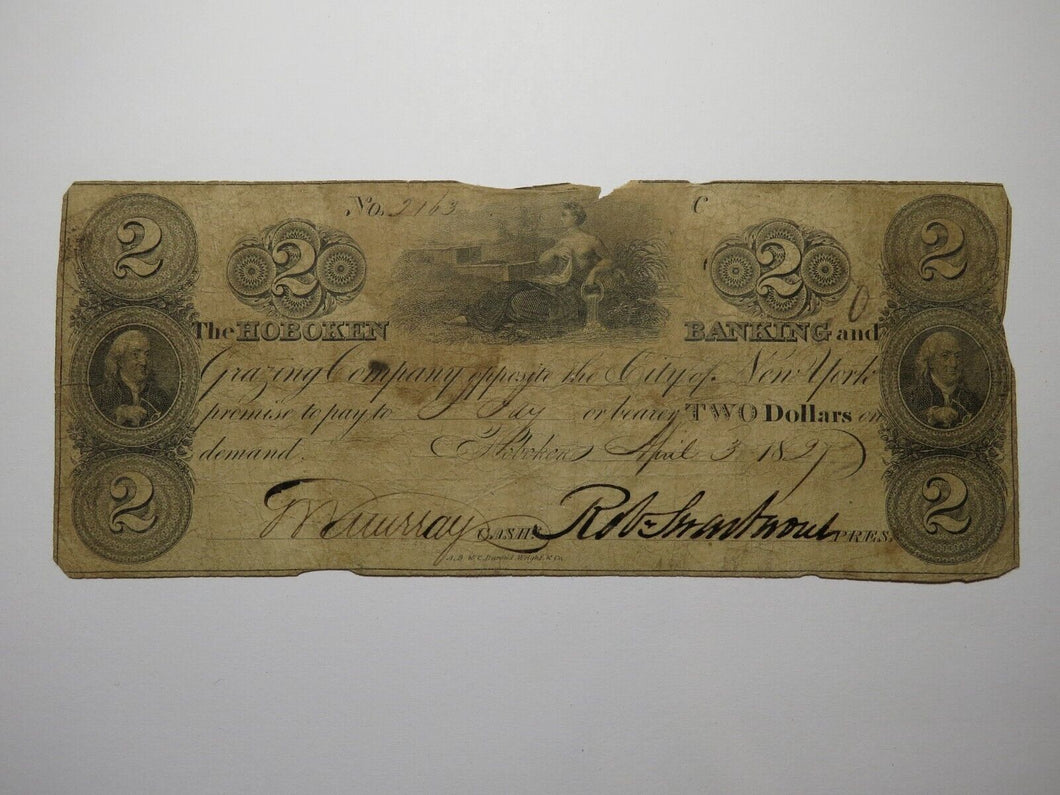 2 No. 2163 C 2
2 2
The HOBOKEN BANKING and
Grazing Company opposite the City of New York
promise to pay to or bearer TWO Dollars on
demand. Hoboken April 3 1827
2 CASHR. PRES. 2
A.B. & C. Durand, Wright & Co.